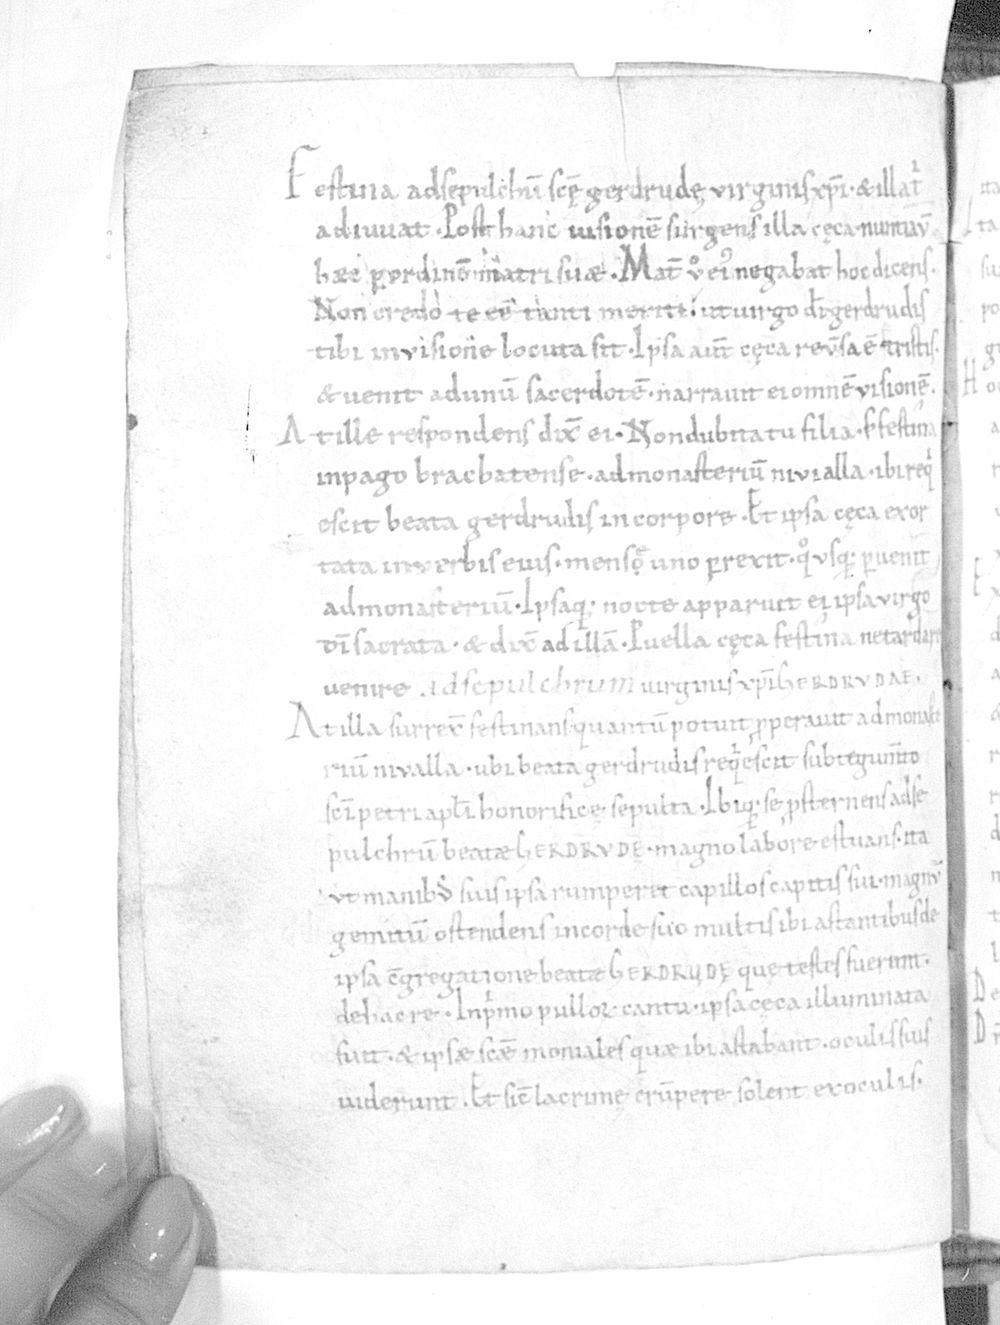 Festina adsepulchū scę gerdrudę virginis xp̄i · & illa t̄
adiuuat · Post hanc uisionē surgens illa cęca nuntiav̄
hæc p̱ ordinē matri suæ · Mat̄ v̊ ei᾽ negabat hoc dicens ·
Non credo te eē tanti meriti · ut uirgo dī gerdrudis
tibi invisione locuta sit · Ipsa aut̄ cęca reūsa ē tristis ·
& uenit ad unū sacerdotē · narrauit ei omnē visionē ·
At ille respondens dix̄ ei · Non dubita tu filia · s festina
inpago bracbatense · admonasteriū nivialla · ibi req̇
escit beata gerdrudis in corpore · Et ipsa cęca exor
tata in verbis eius · mensę uno p̱rexit · q̊ vsq; p̱uenit
admonasteriū · Ipsaq; nocte apparuit ei ipsa virgo
dī sacrata · & dix̄ ad illā · Puella cęca festina ne tardare
uenire adsepulchrum uirginis xp̄i GERDRVDAE ·
At illa surrex̄ festinans quantū potuit p̱perauit admonaste
riū nivalla · ubi beata gerdrudis req̇escit sub tegum̄to
scī petri aplī honorifice sepulta · Ibiq; se p̱sternens adse
pulchrū beatæ GERDRVDĘ · magno labore estuans · ita
vt manibus suis ipsa rumperet capillos capitis sui · magnū
gemitū ostendens in corde suo multis ibi astantibus de
ipsa c̄gregatione beatæ GERDRVDĘ quę testes fuerunt ·
de hac re · Inṗmo pulloꝝ cantu · ipsa cęca illuminata
fuit · & ipsæ scæ moniales quæ ibi astabant · oculis suis
uiderunt · Et sic̄ lacrimę erūpere solent ex oculis ·